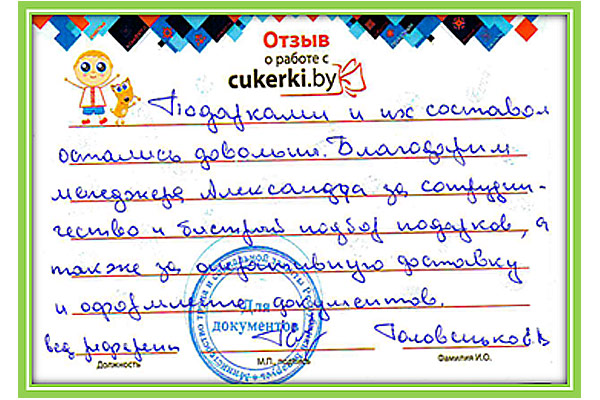 Отзыв
о работе с
cukerki.by
Подарками и их составом
остались довольны. Благодарим
менеджера Александра за сотрудни-
чество и быстрый подбор подарков, а
также за оперативную доставку
и оформление документов.
Для
документов
вед. референт Головенько В.В
Должность М.П., подпись Фамилия И.О.